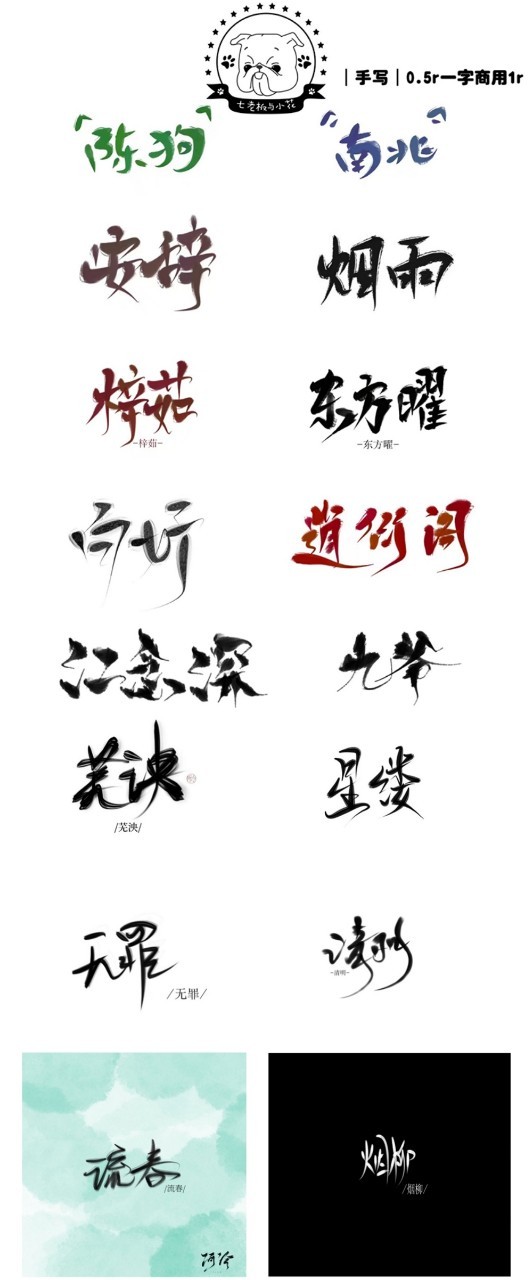 七老板与小花
|手写|0.5r一字商用1r
陈狗
南北
安梓
烟雨
梓茹
-梓茹-
东方曜
-东方曜-
向圻
逍衍阁
江念深
九爷
芜泱
/芜泱/
星缕
无罪
/无罪/
清明
-清明-
流春
/流春/
烟柳
/烟柳/